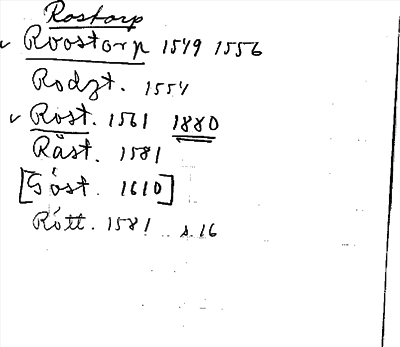 Rostorp
Roostorp 1549 1556
Rodzt. 1554
Rost. 1561 1880
Råst. 1581
[Góst. 1610]
Rótt. 1581 s.16